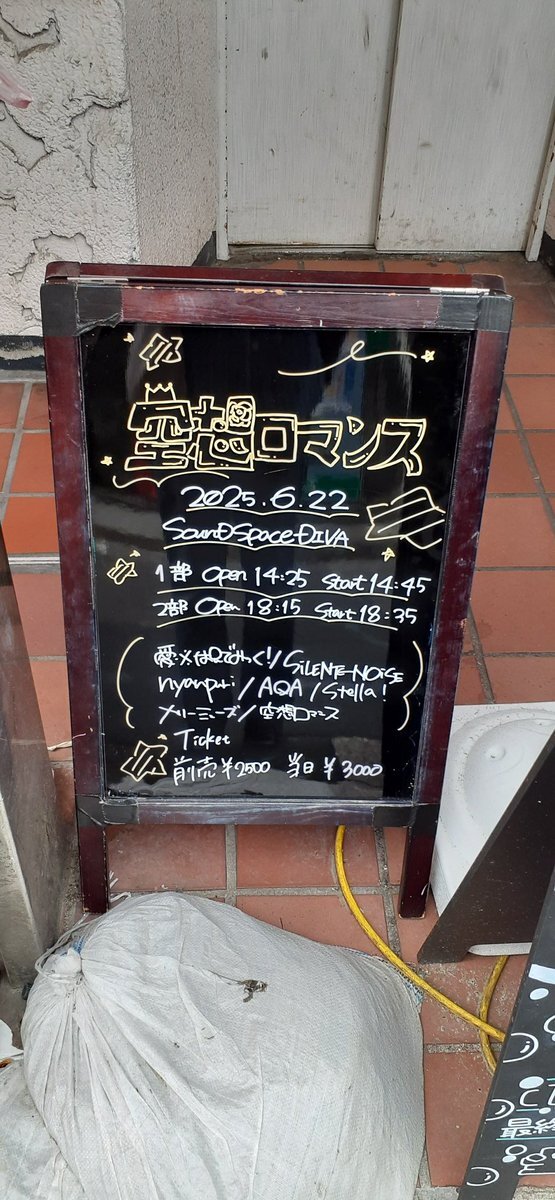 空想ロマンス
2025.6.22
SounDSpace DIVA
1部 Open 14:25 Start 14:45
2部 Open 18:15 Start 18:35
SiLENT NOiSE
nyanpuri / AQA / Stella!
メリーミューズ / 空想ロマンス
Ticket
前売 ¥2500 当日 ¥3000
最終